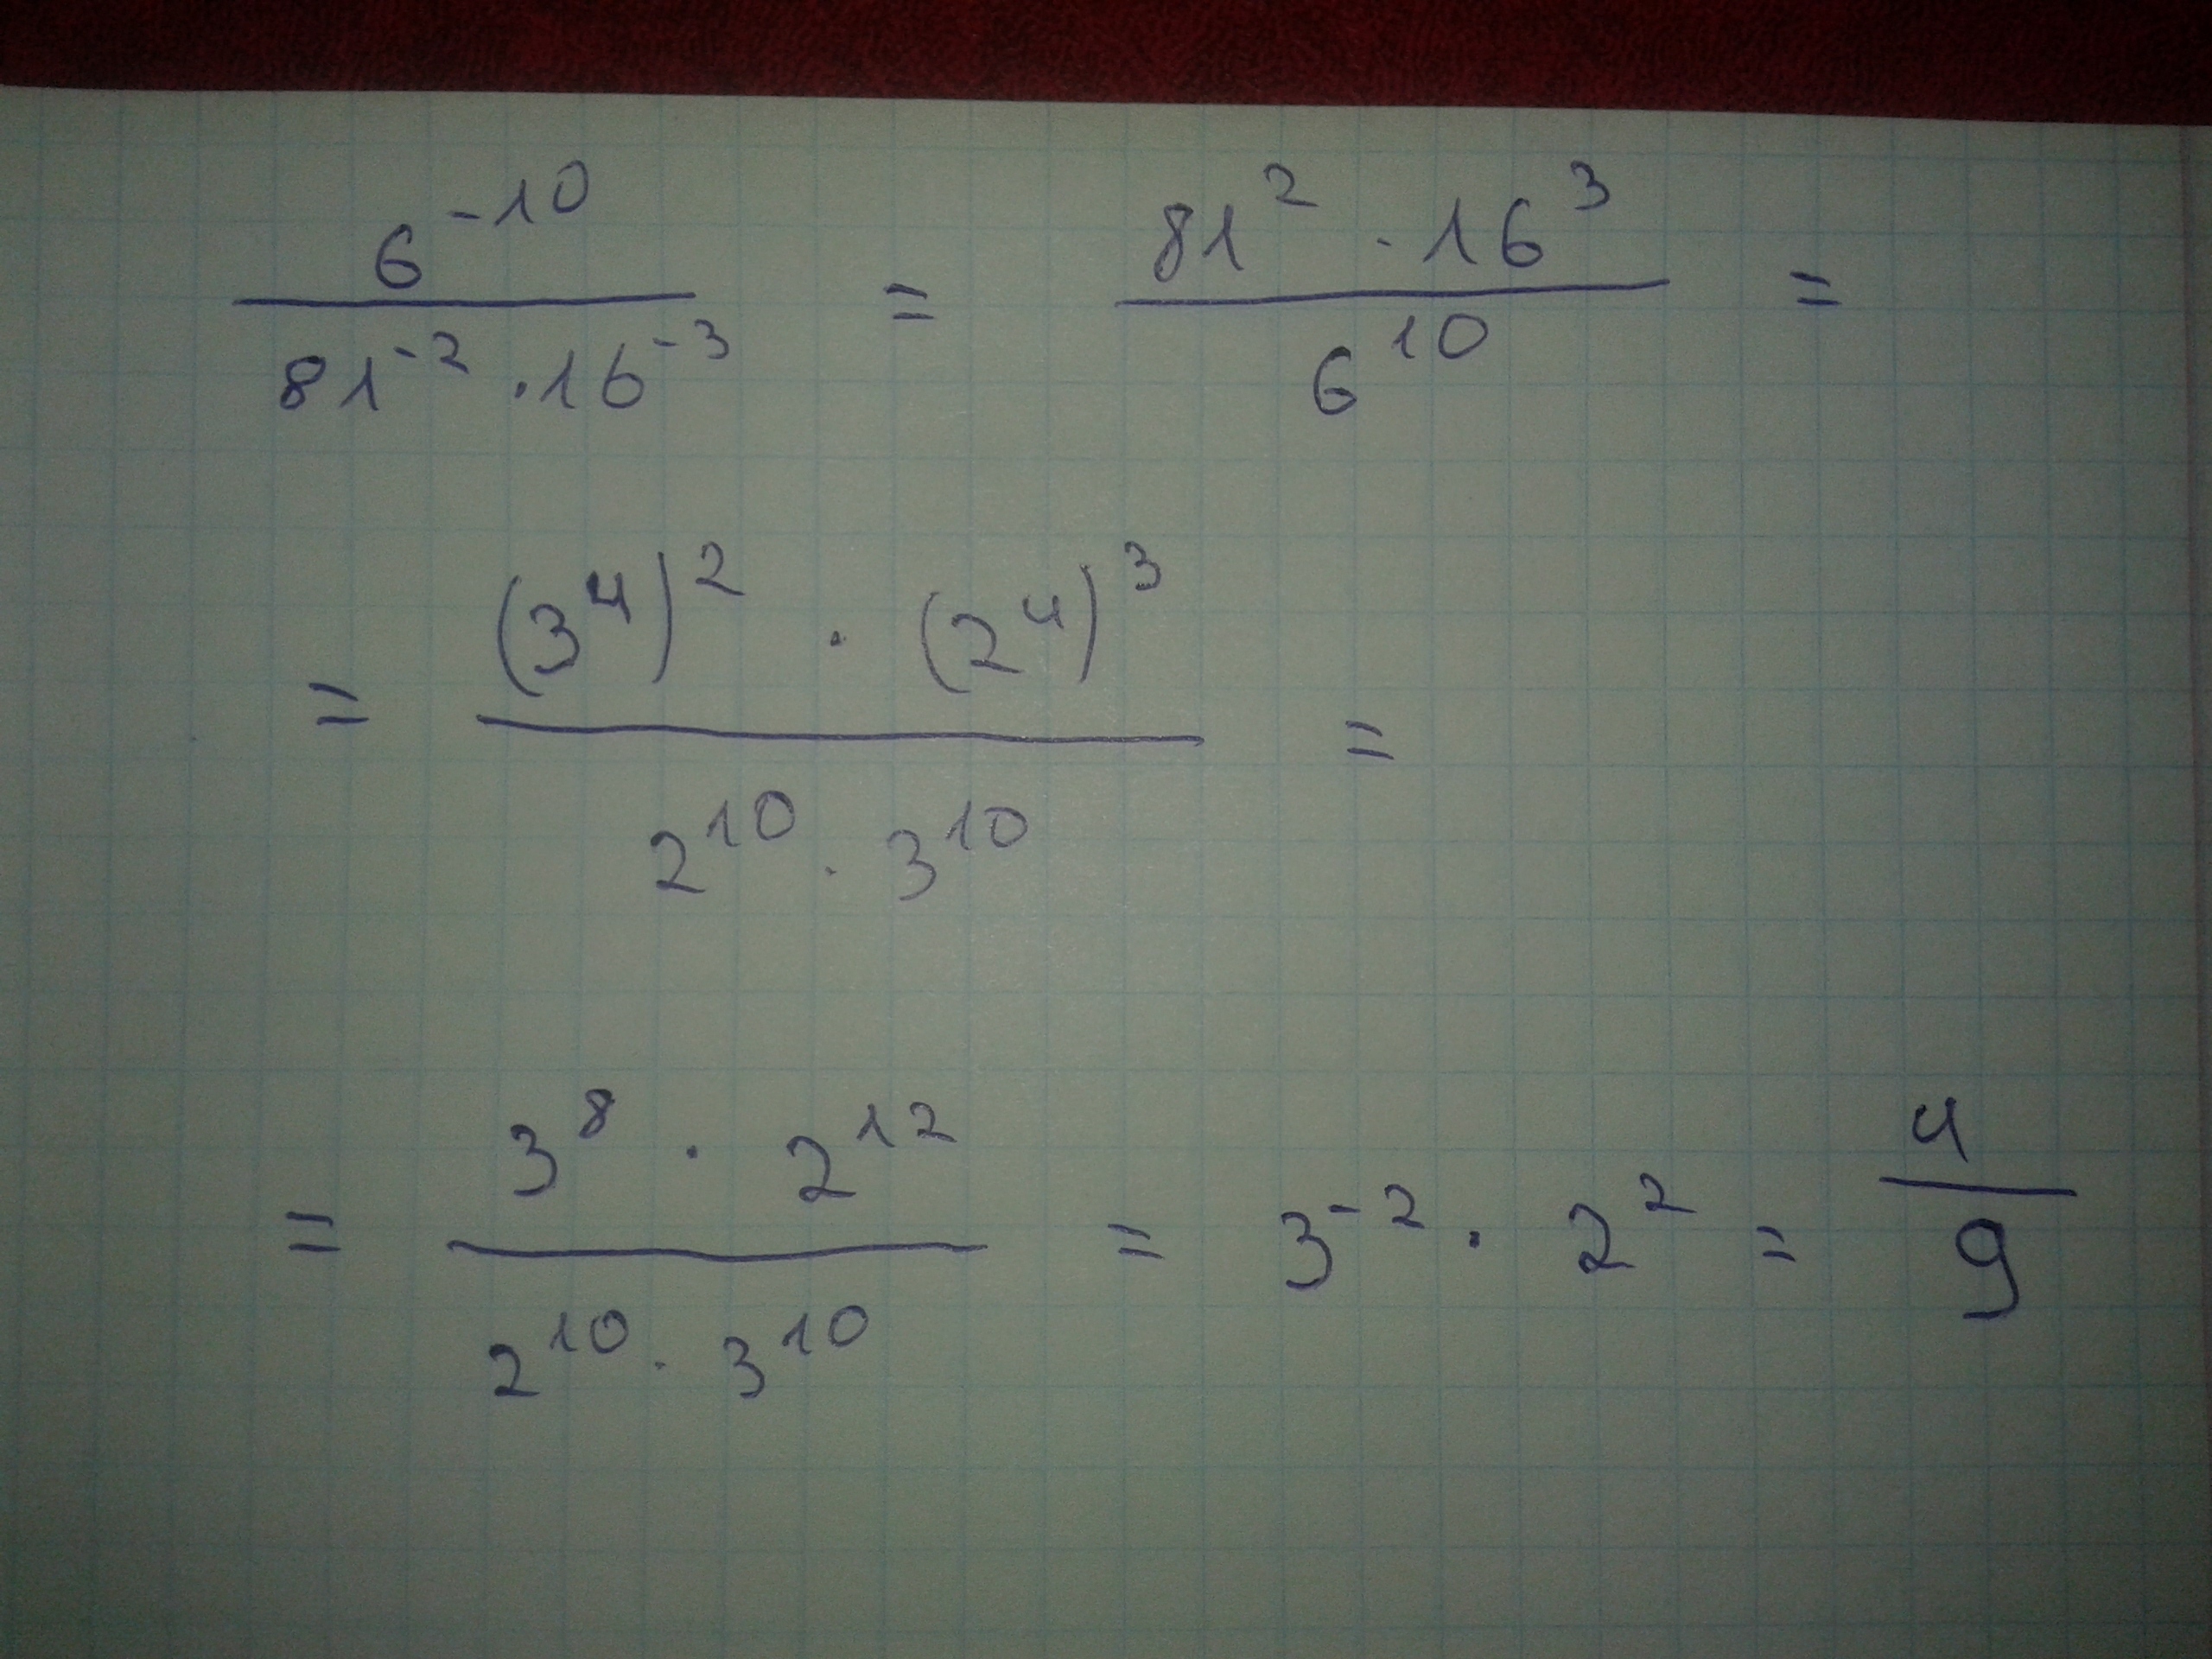 6^-10 / 81^-2 · 16^-3 = 81^2 · 16^3 / 6^10 =
= (3^4)^2 · (2^4)^3 / 2^10 · 3^10 =
= 3^8 · 2^12 / 2^10 · 3^10 = 3^-2 · 2^2 = 4/9